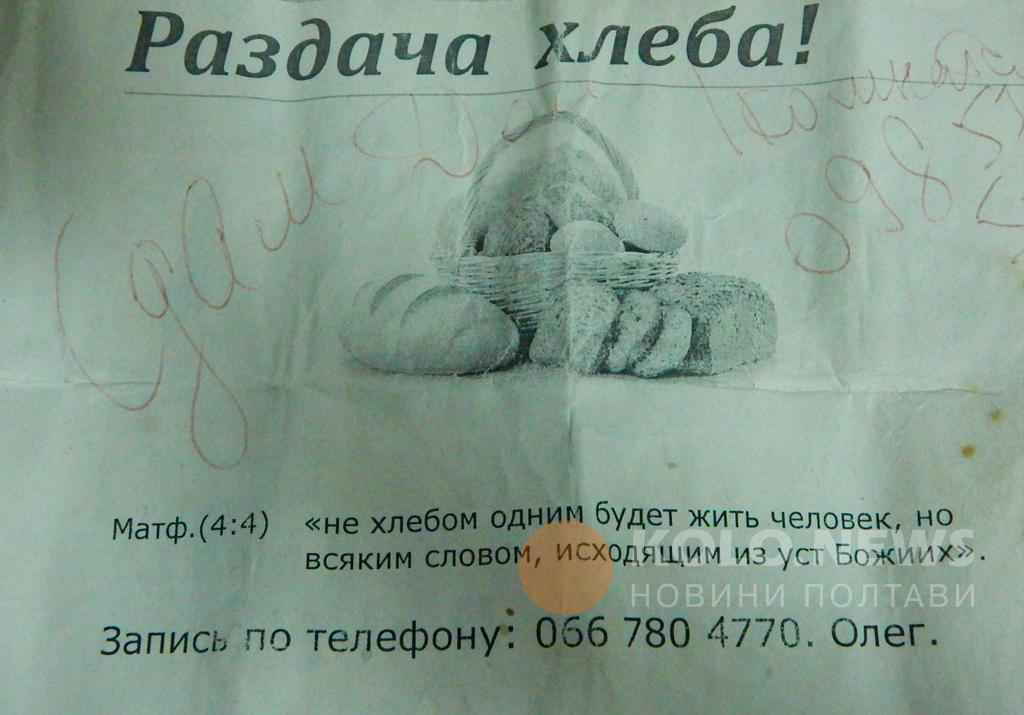 Раздача хлеба!
Сдам дом
Матф.(4:4) «не хлебом одним будет жить человек, но
всяким словом, исходящим из уст Божиих».
KOLO NEWS
НОВИНИ ПОЛТАВИ
Запись по телефону: 066 780 4770. Олег.